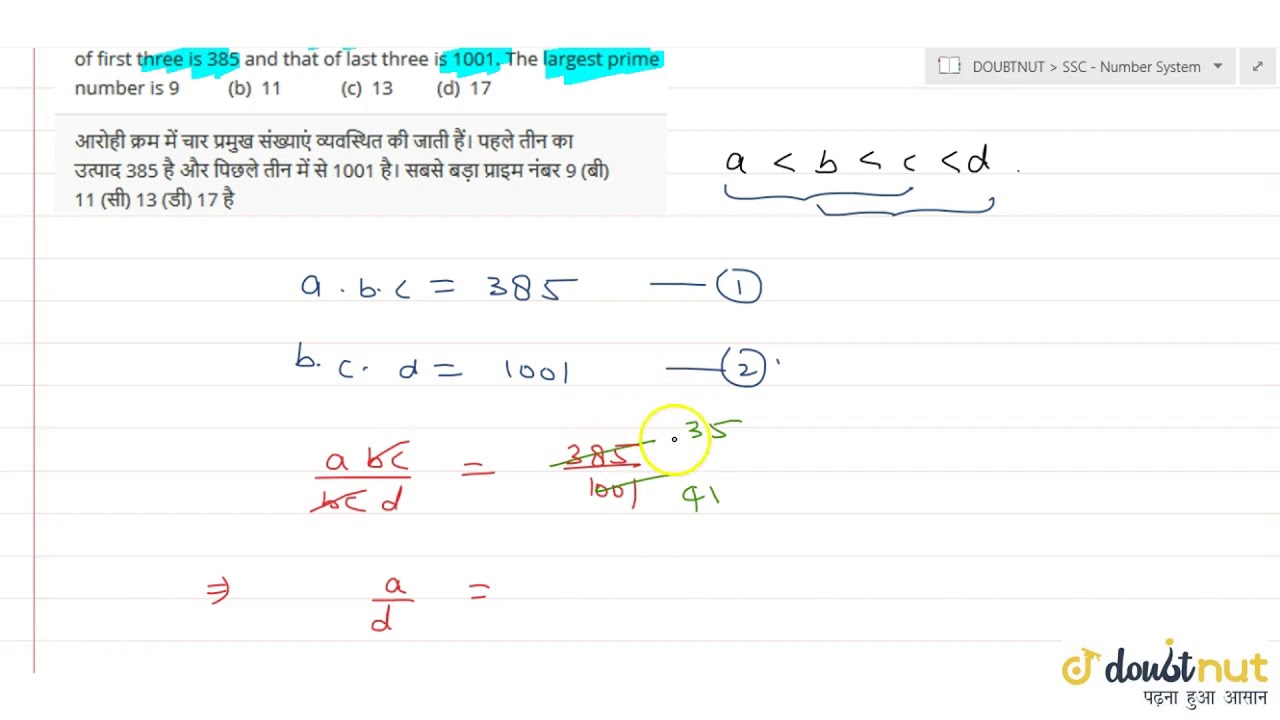 of first three is 385 and that of last three is 1001. The largest prime
number is 9 (b) 11 (c) 13 (d) 17
DOUBTNUT > SSC - Number System
आरोही क्रम में चार प्रमुख संख्याएं व्यवस्थित की जाती हैं। पहले तीन का
उत्पाद 385 है और पिछले तीन में से 1001 है। सबसे बड़ा प्राइम नंबर 9 (बी)
11 (सी) 13 (डी) 17 है
a < b < c < d .
a . b . c = 385 — 1
b . c . d = 1001 — 2
a b c = 385 35
b c d 1001 91
⇒ a =
d
doubtnut
पढ़ना हुआ आसान